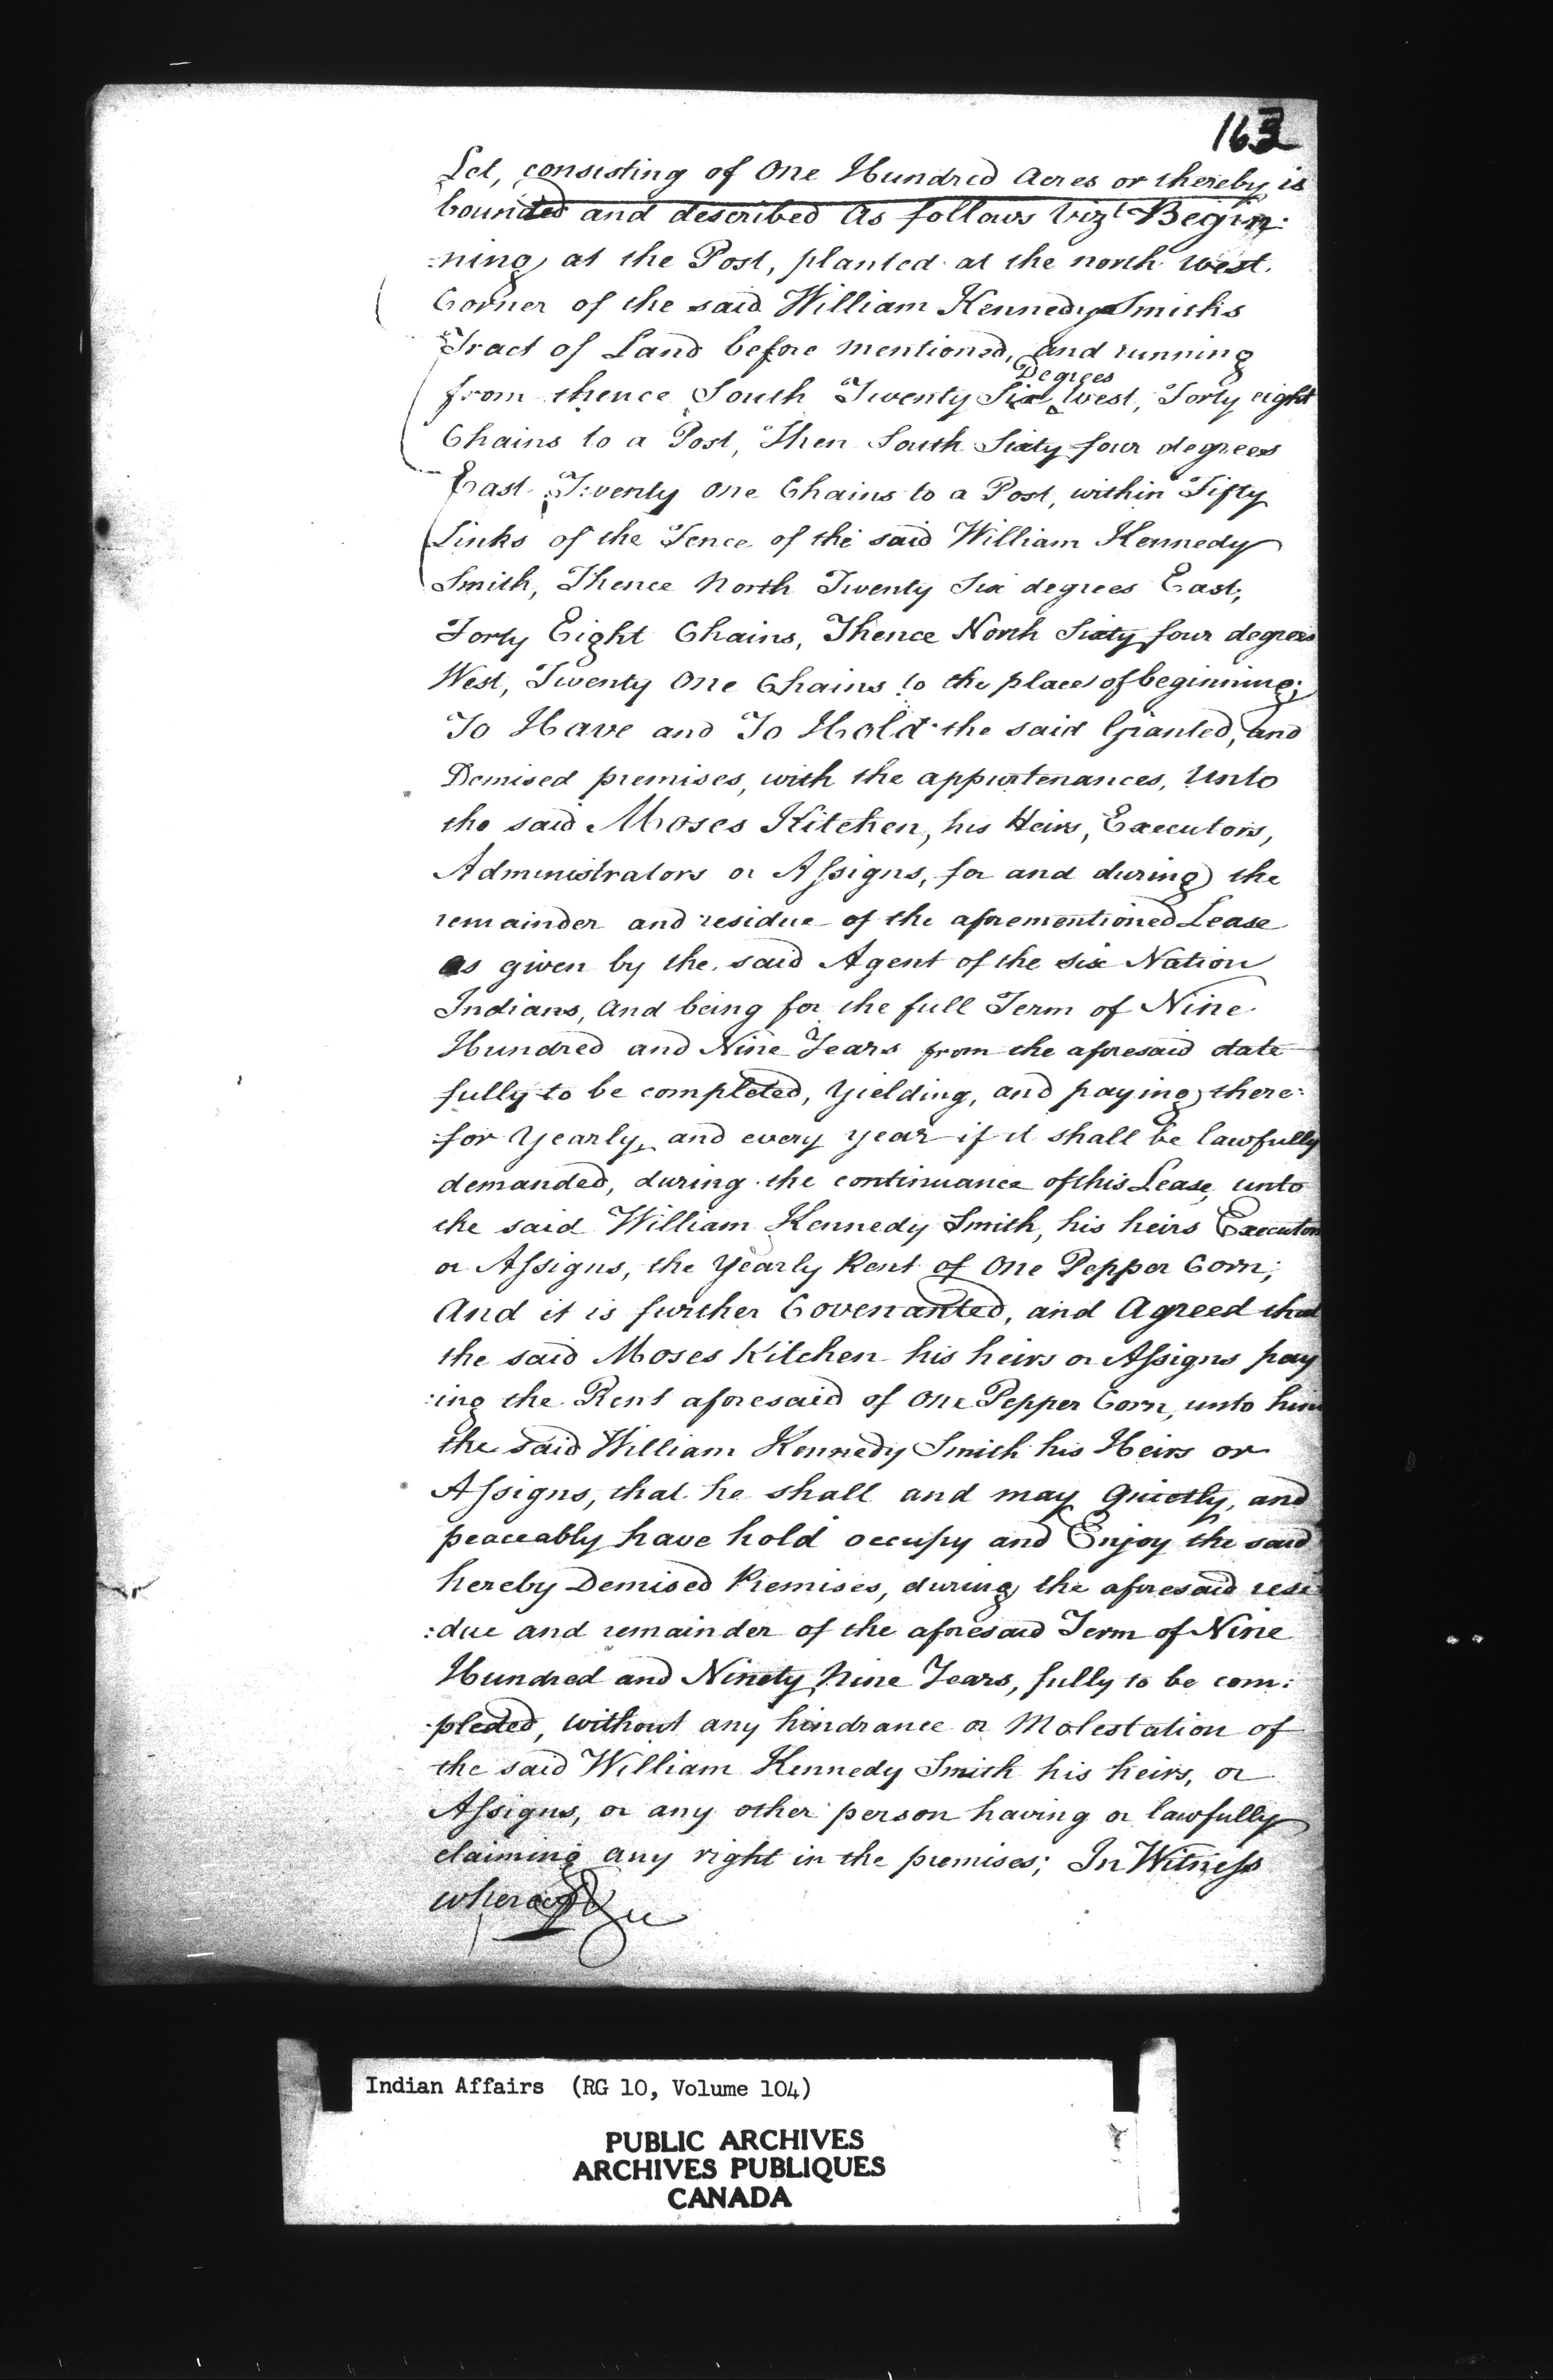 163
Lot, consisting of One Hundred Acres or thereby is
bounded and described As follows Vizt Begin:
:ning at the Post, planted at the north west
Corner of the said William Kennedy Smiths
Tract of Land before mentioned, and running
from thence South Twenty Six Degrees West, Forty eight
Chains to a Post, Then South Sixty four degrees
East Twenty One Chains to a Post, within Fifty
Links of the Fence of the said William Kennedy
Smith, Thence North Twenty Six degrees East,
Forty Eight Chains, Thence North Sixty four degrees
West, Twenty One Chains to the place of beginning;
To Have and To Hold the said Granted, and
Demised premises, with the appurtenances, Unto
the said Moses Kitchen, his Heirs, Executors,
Administrators or Assigns, for and during the
remainder and residue of the aforementioned Lease
as given by the said Agent of the Six Nation
Indians, and being for the full Term of Nine
Hundred and Nine Years from the aforesaid date
fully to be completed, Yielding, and paying there:
:for Yearly, and every year if it shall be lawfully
demanded, during the continuance of this Lease, unto
the said William Kennedy Smith, his heirs Executors
or Assigns, the Yearly Rent of One Pepper Corn;
And it is further Covenanted, and Agreed that
the said Moses Kitchen his heirs or Assigns pay
:ing the Rent aforesaid of One Pepper Corn, unto him
the said William Kennedy Smith his Heirs or
Assigns, that he shall and may Quietly, and
peaceably have hold occupy and Enjoy the said
hereby Demised Premises, during the aforesaid resi
:due and remainder of the aforesaid Term of Nine
Hundred and Ninety Nine Years, fully to be com:
:pleted, without any hindrance or Molestation of
the said William Kennedy Smith his heirs, or
Assigns, or any other person having or lawfully
claiming any right in the premises; In Witness
whereof
Indian Affairs (RG 10, Volume 104)
PUBLIC ARCHIVES
ARCHIVES PUBLIQUES
CANADA